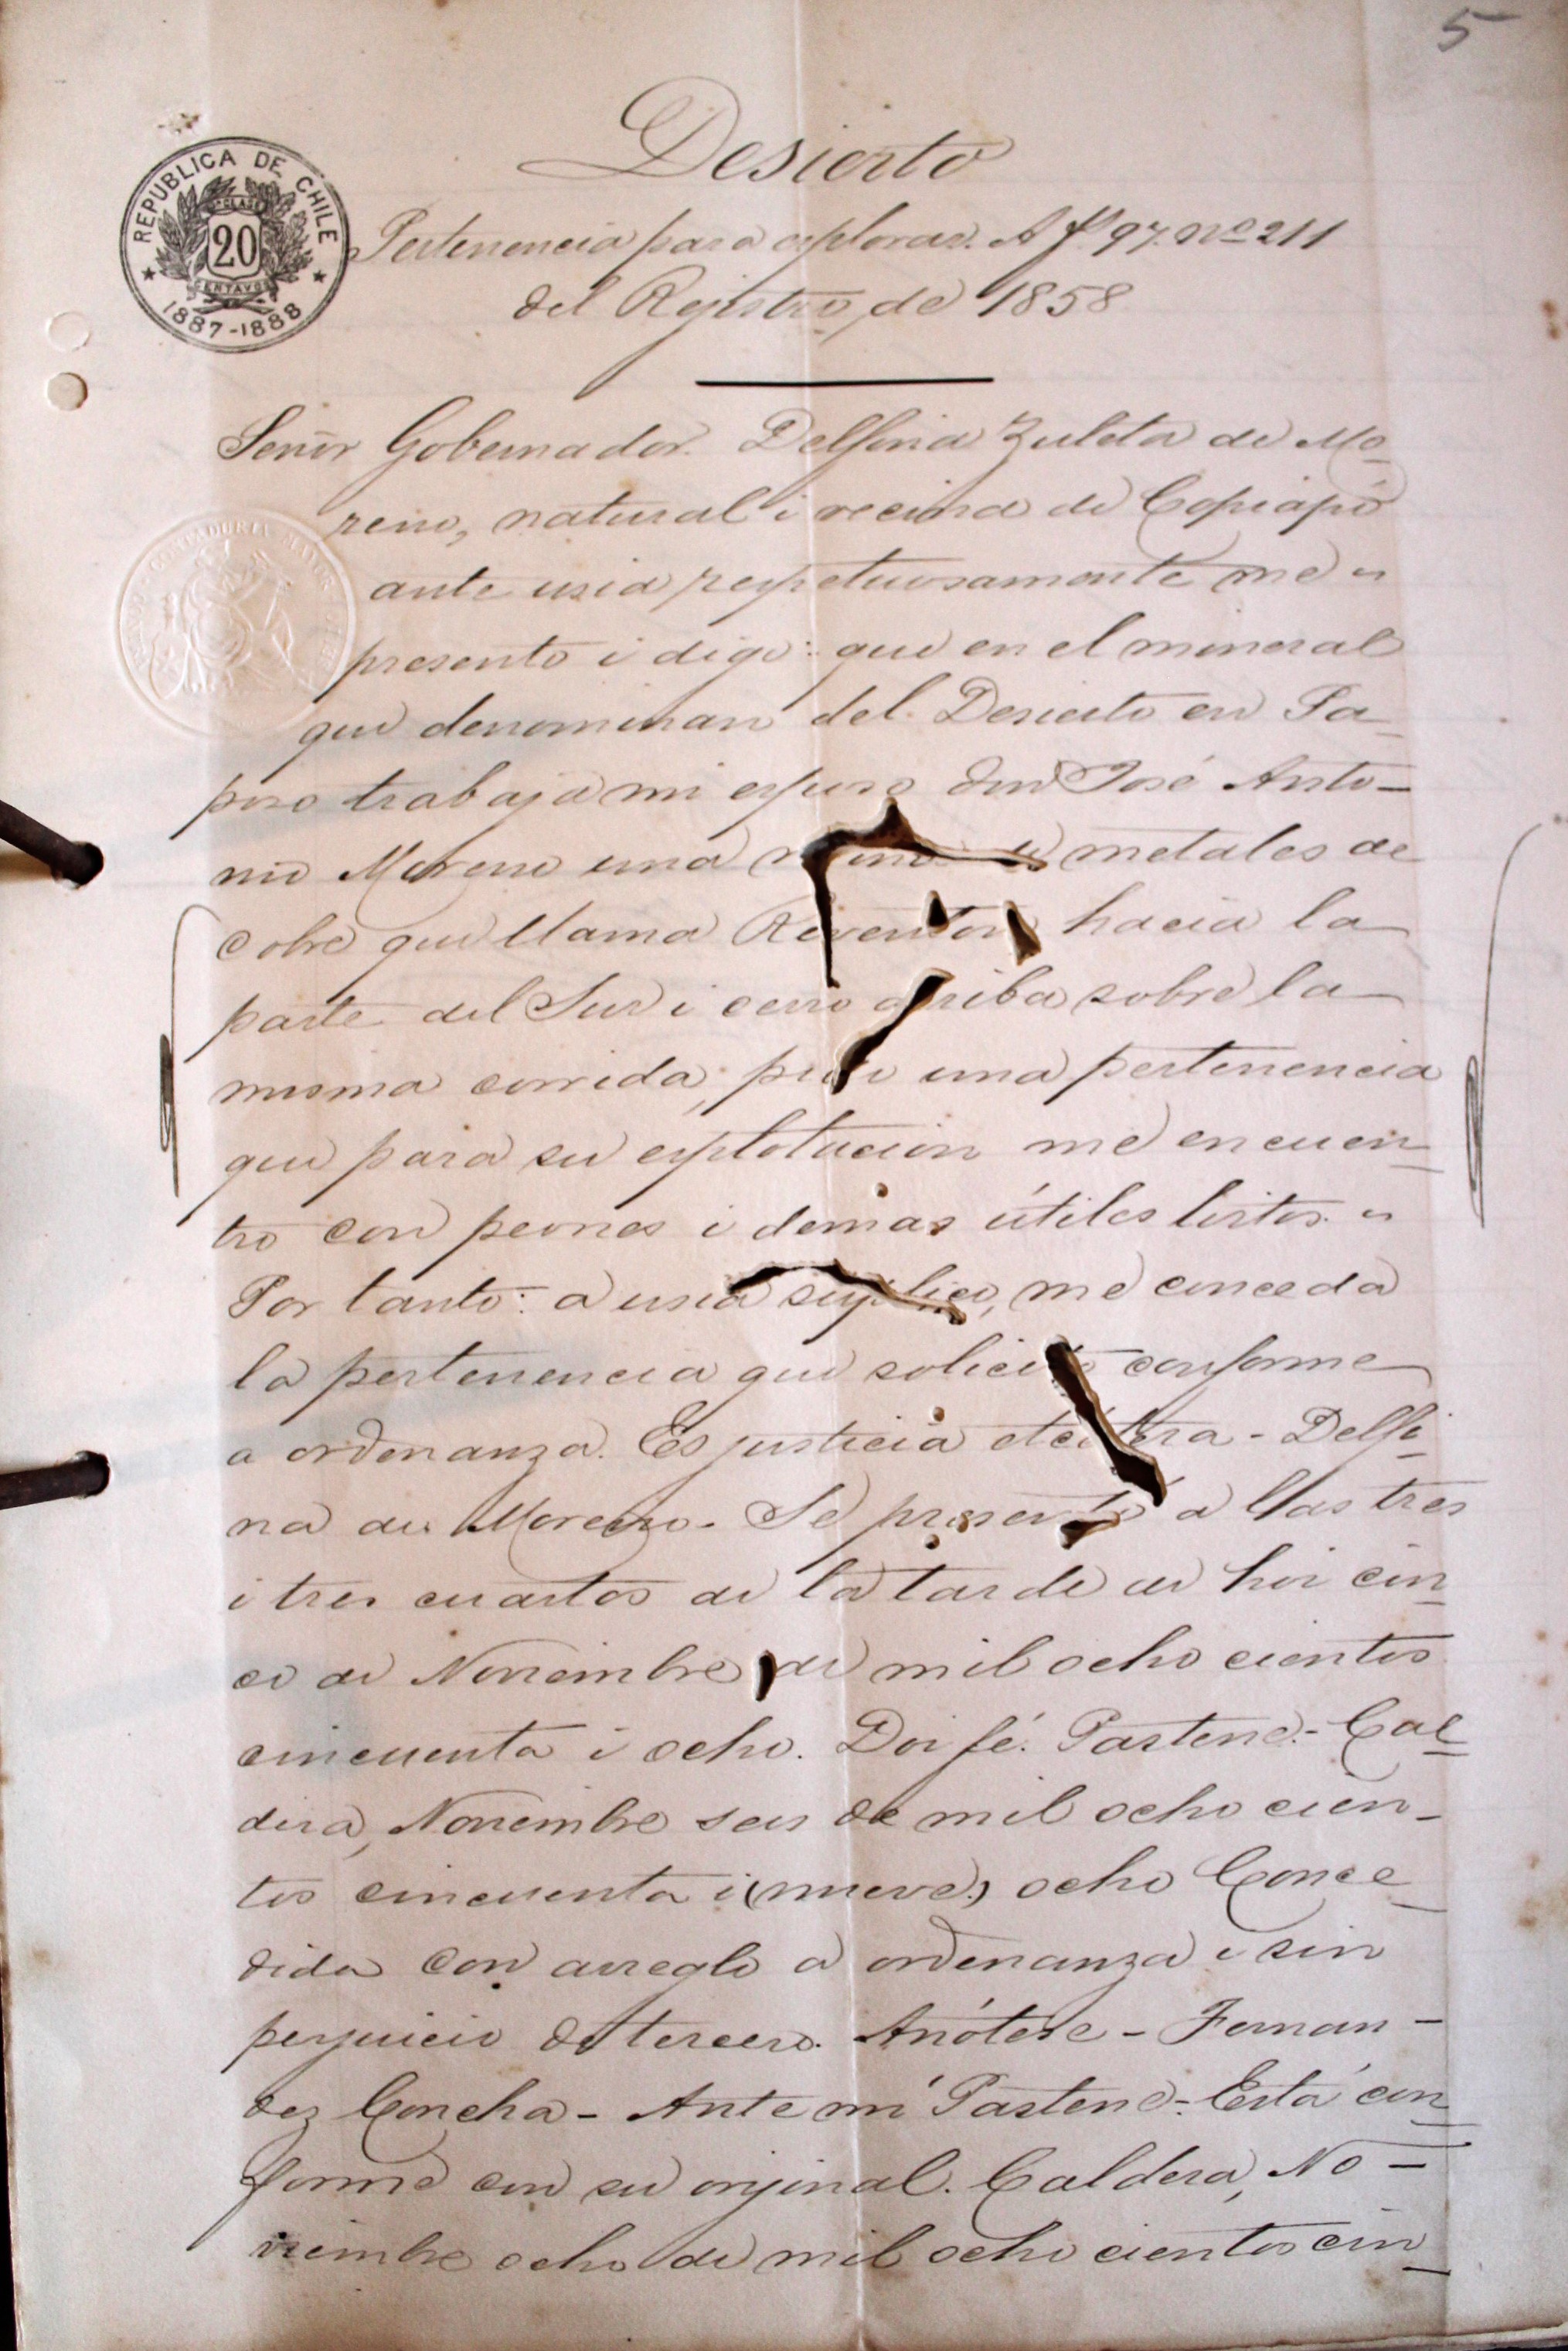 5
Desierto
REPUBLICA DE CHILE
20
CENTAVOS
1887-1888
Pertenencia para esplorar. A f.s 97. No 211
del Rejistro de 1858
Señor Gobernador. Delfina Zuleta de Mo-
reno, natural i vecina de Copiapó
ante usia respetuosamente me
presento i digo: que en el mineral
que denominan del Desierto en Pa-
poso trabaja mi esposo don José Anto-
nio Moreno una mina de metales de
cobre que llama Reventon hacia la
parte del Sur i cerro arriba sobre la
misma corrida, pido una pertenencia
que para su esplotacion me encuen-
tro con peones i demas útiles listos.
Por tanto: a usia suplico, me conceda
la pertenencia que solicito conforme
a ordenanza. Es justicia etcétera - Delfi-
na de Moreno. Se presentó a las tres
i tres cuartos de la tarde de hoi cin-
co de Noviembre de mil ocho cientos
cincuenta i ocho. Doi fé. Pastene.- Cal-
dera, Noviembre seis de mil ocho cien-
tos cincuenta i (nueve) ocho Conce-
dida con arreglo a ordenanza i sin
perjuicio de tercero. Anótese - Fernan-
dez Concha - Ante mí Pastene.- Está con-
forme con su orijinal. Caldera, No-
viembre ocho de mil ocho cientos cin-